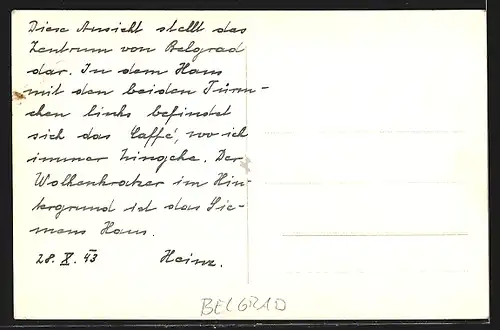 Diese Ansicht stellt das
Zentrum von Belgrad
dar. In dem Haus
mit den beiden Türm-
chen links befindet
sich das Caffé, wo ich
immer hingehe. Der
Wolkenkratzer im Hin-
tergrund ist das Sie-
mens Haus.
28. X. 43 Heinz.
BELGRAD